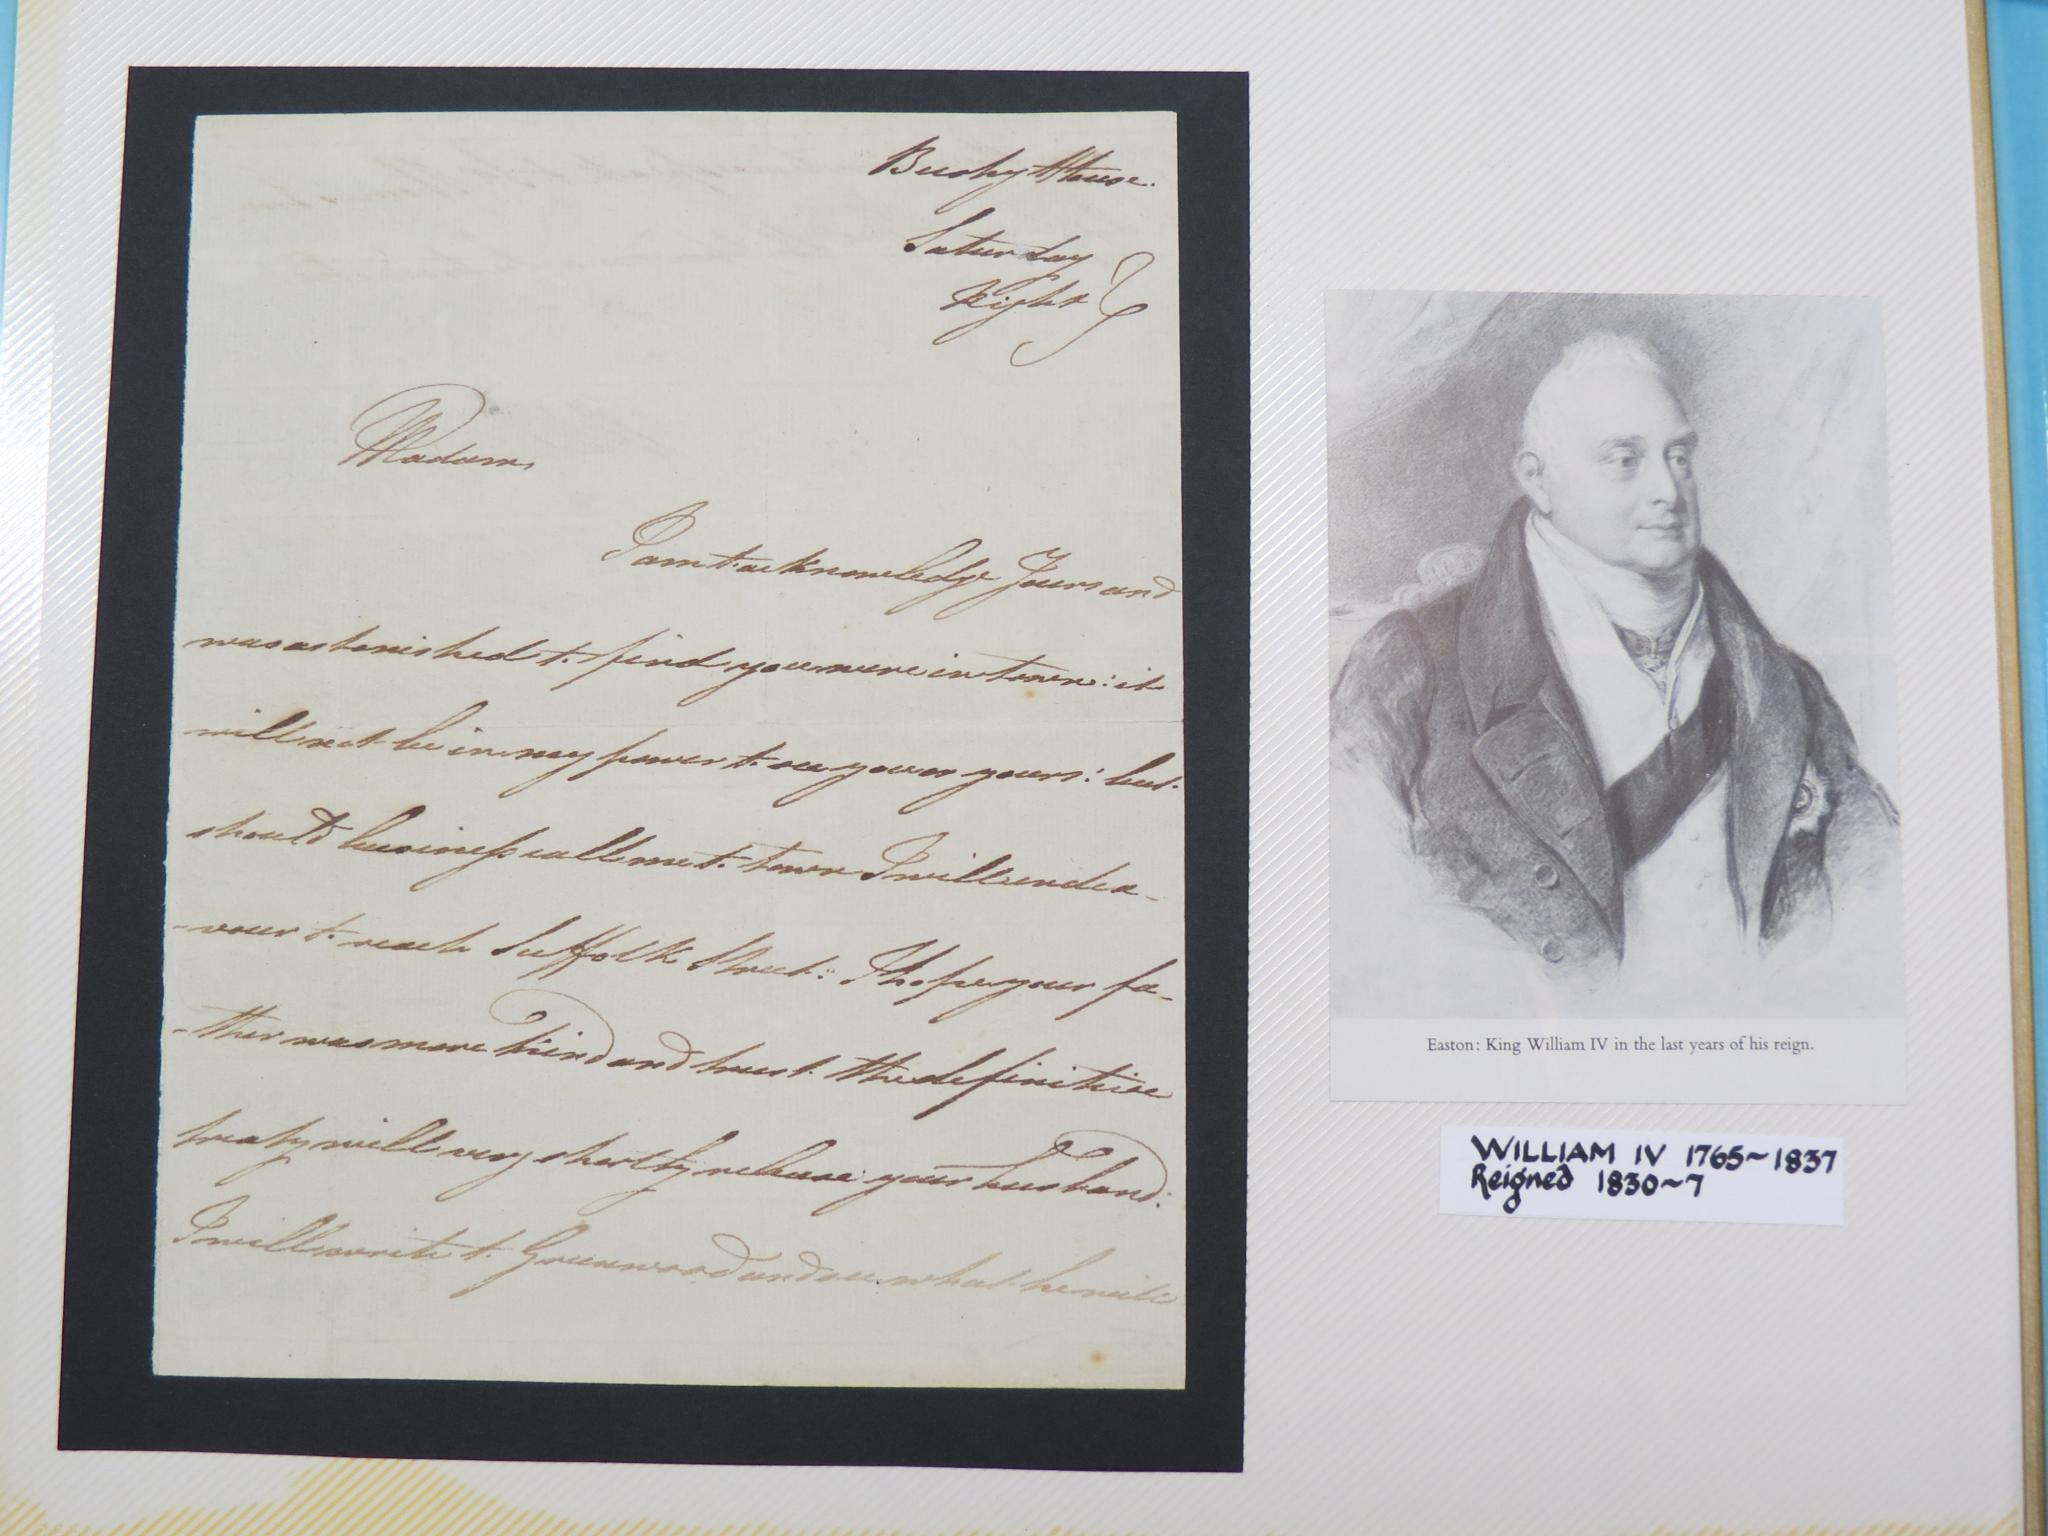 Bushy House.
Saturday
Night
Madam,
I am to acknowledge Yours and
was astonished to find you were in town: it
will not be in my power to see you or yours: but
should business call me to town I will endea-
-vour to reach Suffolk Street: I hope your fa-
-ther was more kind and trust the definitive
treaty will very shortly release your husband:
I will write to Greenwood and see what he will
Easton: King William IV in the last years of his reign.
WILLIAM IV 1765~1837
Reigned 1830~7